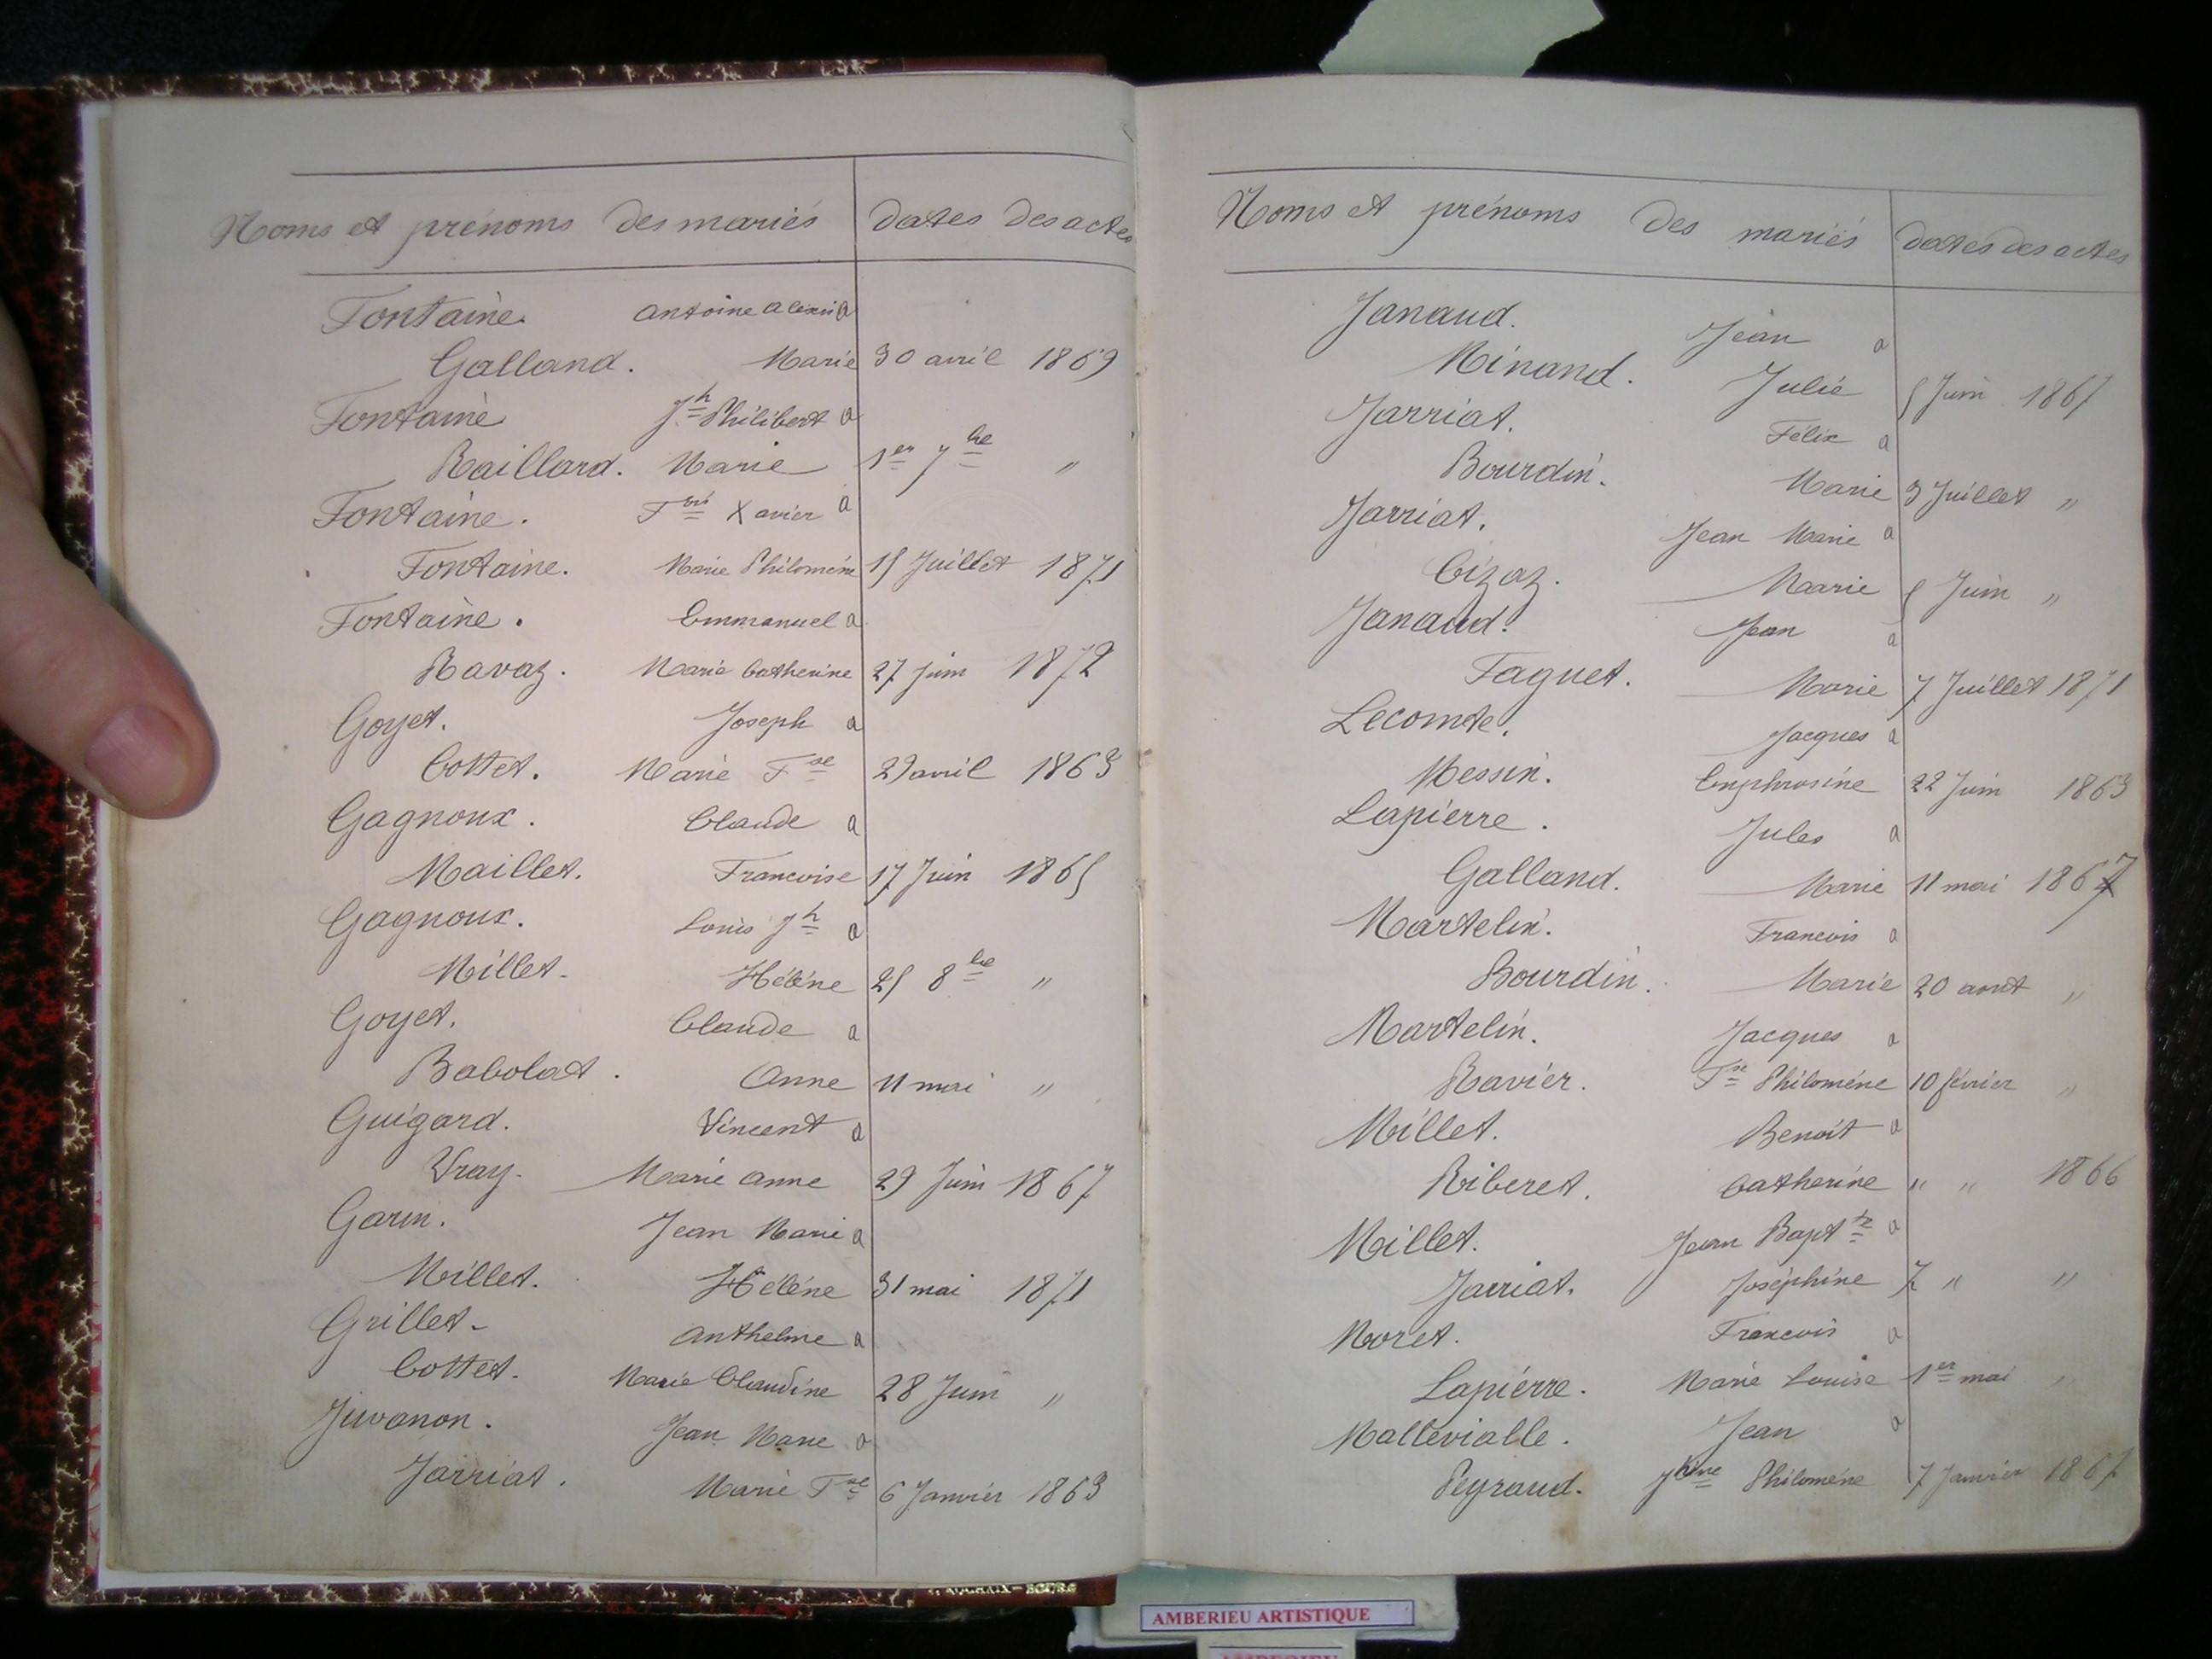 Noms et prénoms des mariés dates des actes
Fontaine. Antoine Alexis a
Galland. Marie 30 avril 1869
Fontaine Jh Philibert a
Raillard. Marie 1er 7bre "
Fontaine. Fois Xavier a
Fontaine. Marie Philomène 15 Juillet 1871
Fontaine. Emmanuel a
Ravaz. Marie Catherine 27 juin 1872
Goyet. Joseph a
Cottet. Marie Fse 29 avril 1863
Gagnoux. Claude a
Maillet. Francoise 17 Juin 1865
Gagnoux. Louis Jh a
Millet. Hélène 25 8bre "
Goyet. Claude a
Babolat. Anne 11 mai "
Guigard. Vincent a
Vray. Marie Anne 29 Juin 1867
Garin. Jean Marie a
Millet. Hélène 31 mai 1871
Grillet. Anthelme a
Cottet. Marie Claudine 28 Juin "
Juvanon. Jean Marie a
Jarriat. Marie Fse 6 Janvier 1863
Noms et prénoms des mariés dates des actes
Janaud. Jean a
Minand. Julie 5 Juin
Jarriat. Félix a
Bourdin. Marie 3 Juillet "
Jarriat. Jean Marie a
Cizaz. Marie Juin "
Janaud. Jean a
Faguet. Marie 7 Juillet 1871
Lecomte. Jacques a
Messin. Emphrosine 22 Juin 1863
Lapierre. Jules a
Galland. Marie 11 mai 1867
Martelin. Francois a
Bourdin. Marie 20 aout "
Martelin. Jacques a
Ravier. Fse Philomène 10 février "
Millet. Benoit a
Riberet. Catherine " " 1866
Millet. Jean Baptte a
Jarriat. Joséphine 7 " "
Moret. Francois a
Lapierre. Marie Louise 1er mai "
Mallevialle. Jean a
Peyraud. Jhine Philomène 7 Janvier
AMBERIEU ARTISTIQUE
AMBERIEU